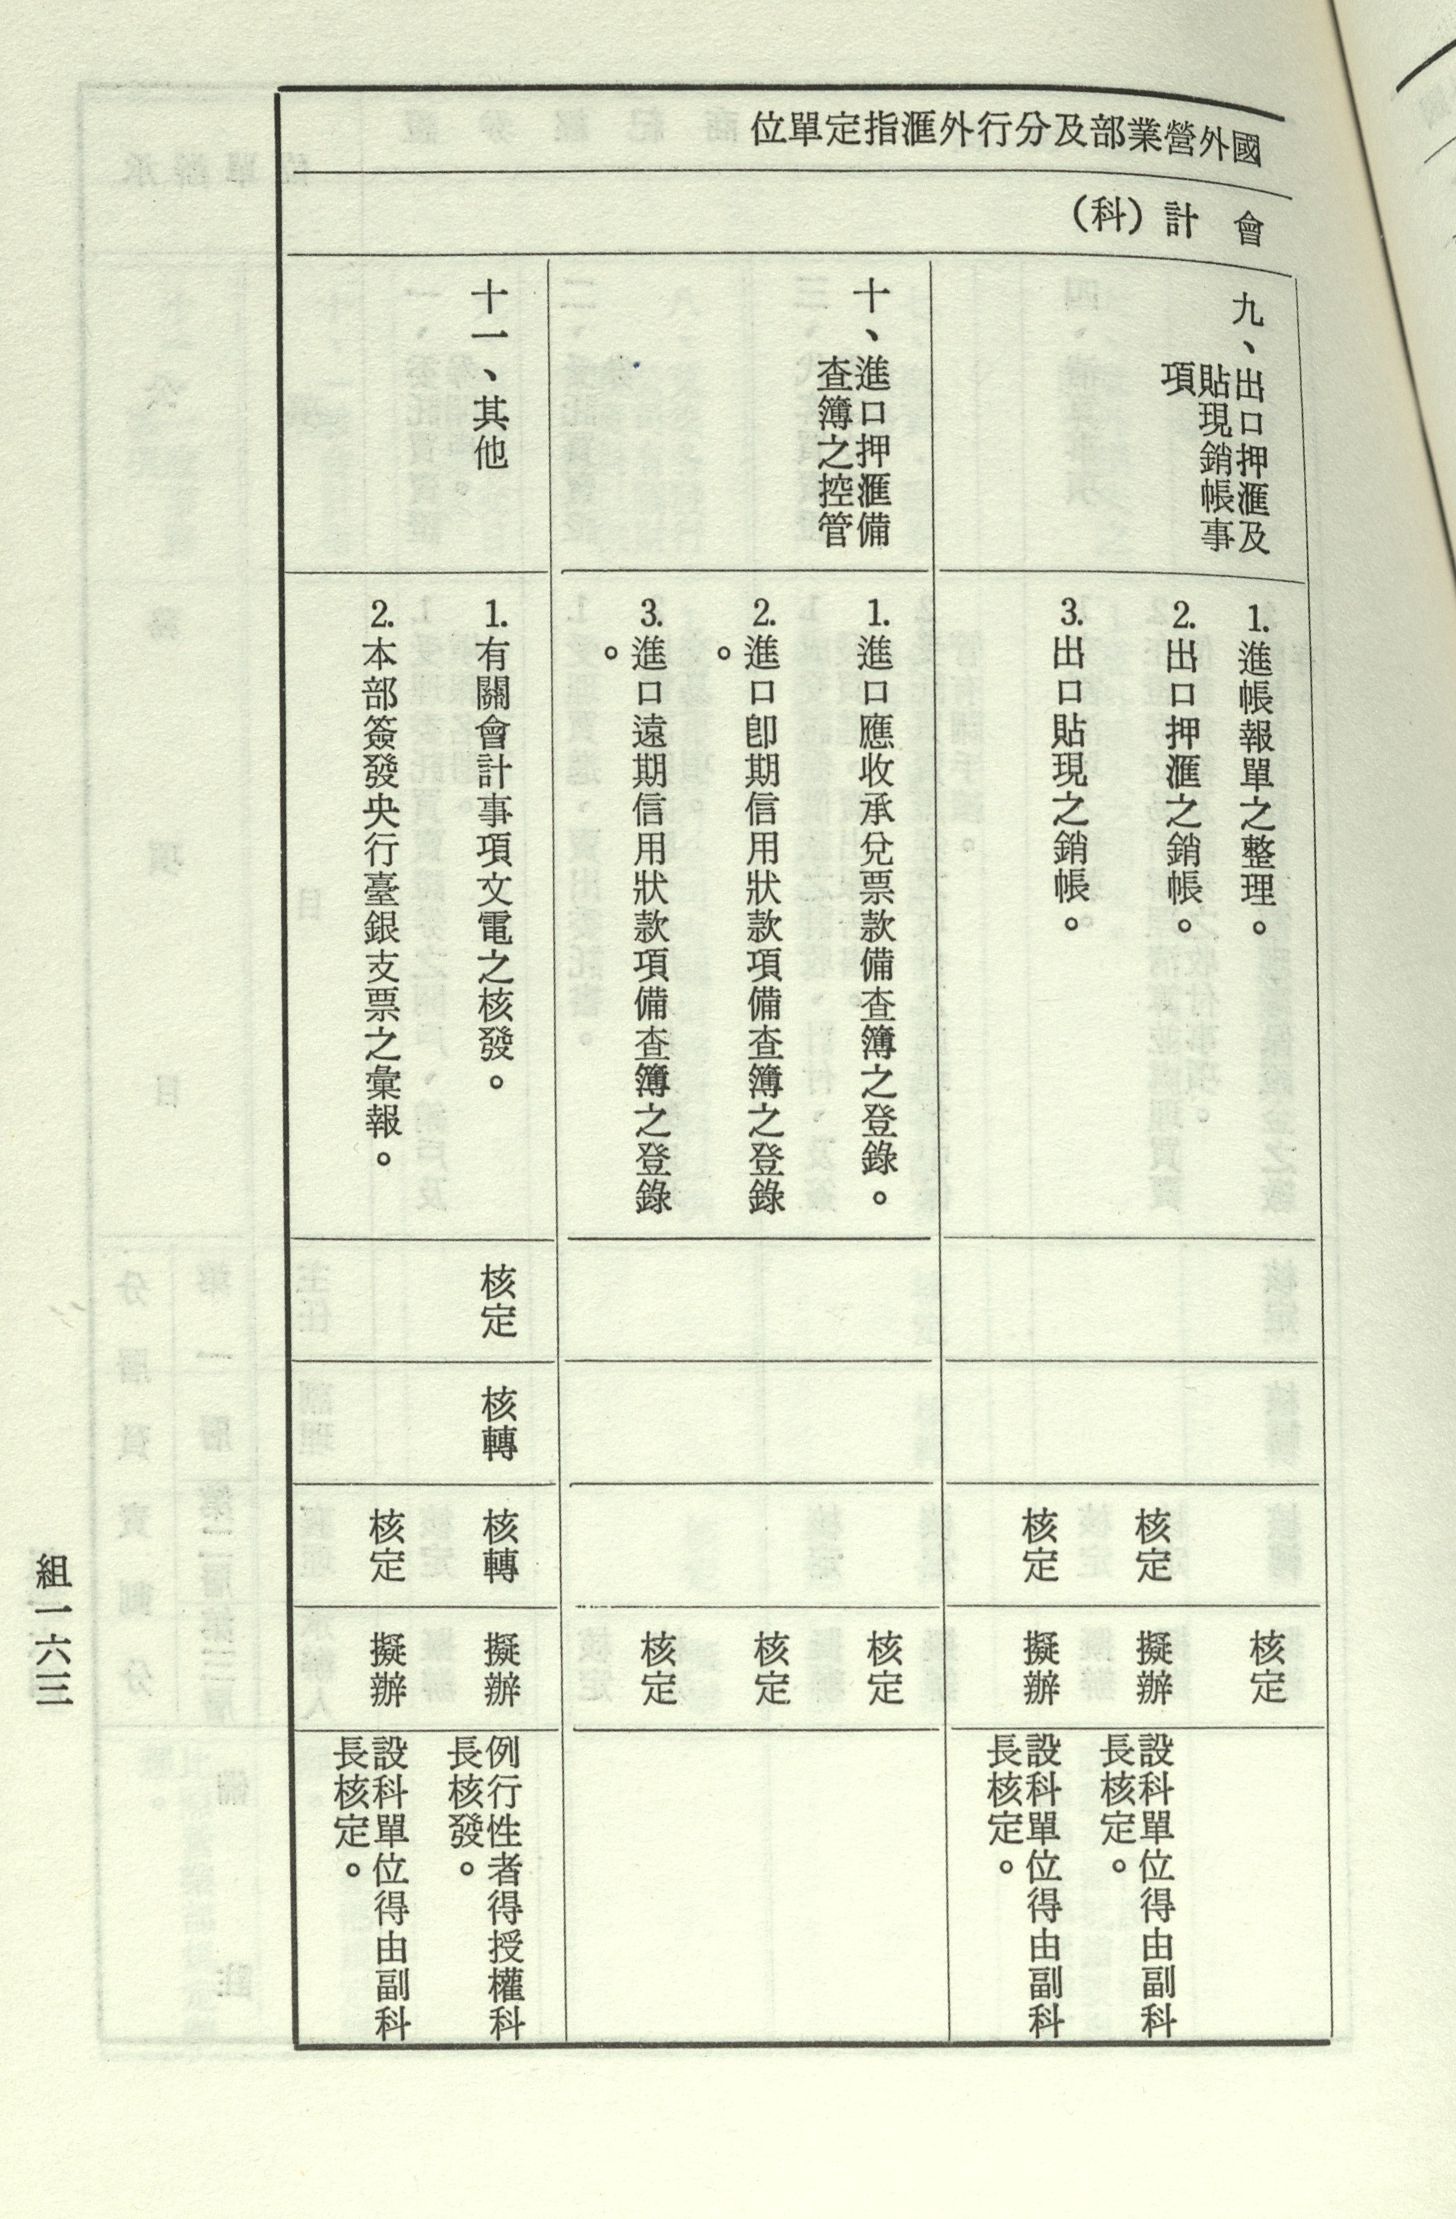 國外營業部及分行外滙指定單位
會計（科）
九、出口押滙及
貼現銷帳事
項
1.進帳報單之整理。
核定
2.出口押滙之銷帳。
核定
擬辦
設科單位得由副科
長核定。
3.出口貼現之銷帳。
核定
擬辦
設科單位得由副科
長核定。
十、進口押滙備
查簿之控管
1.進口應收承兌票款備查簿之登錄。
核定
2.進口卽期信用狀款項備查簿之登錄
。
核定
3.進口遠期信用狀款項備查簿之登錄
。
核定
十一、其他
1.有關會計事項文電之核發。
核定
核轉
核轉
擬辦
例行性者得授權科
長核發。
2.本部簽發央行臺銀支票之彙報。
核定
擬辦
設科單位得由副科
長核定。
組一六三